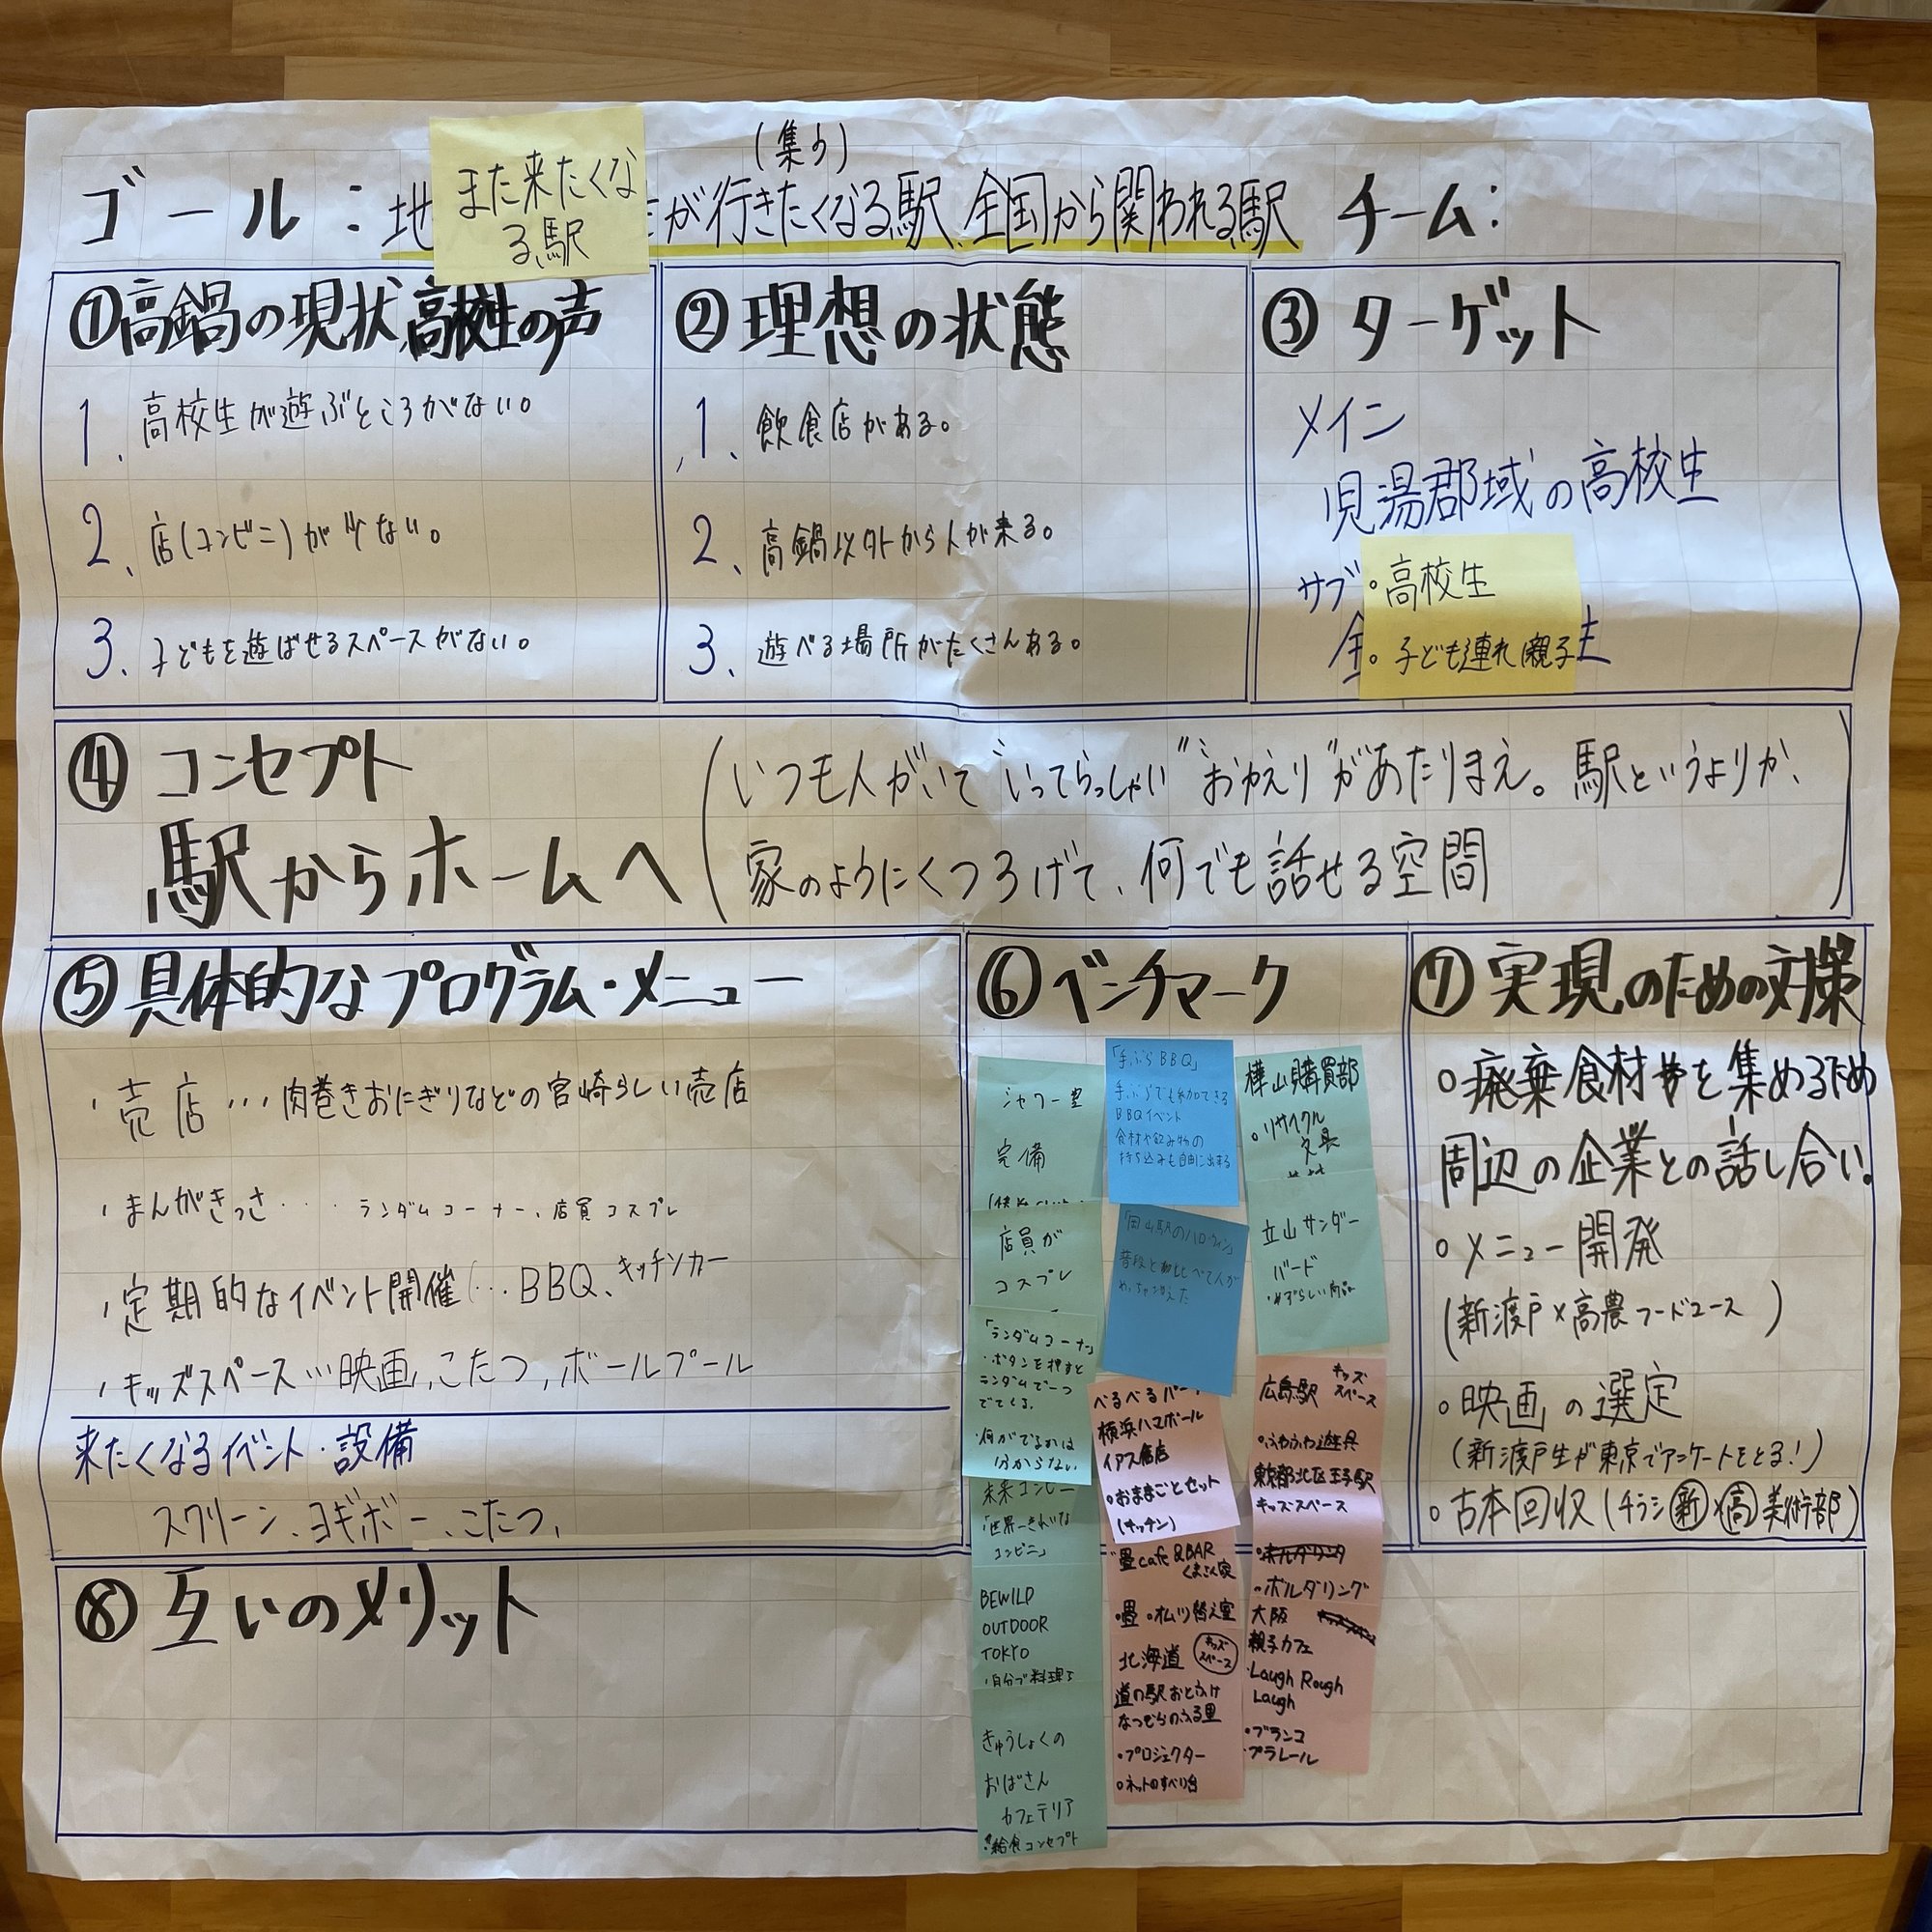 (集う)
ゴール：地
また来たくな
る駅
が行きたくなる駅、全国から関われる駅
チーム：
①高鍋の現状、高校生の声
1、高校生が遊ぶところがない。
2、店(コンビニ)が少ない。
3、子どもを遊ばせるスペースがない。
②理想の状態
1、飲食店がある。
2、高鍋以外から人が来る。
3、遊べる場所がたくさんある。
③ターゲット
メイン
児湯郡域の高校生
サブ
。高校生
。子ども連れ親子
④コンセプト
駅からホームへ
(いつも人がいて"いってらっしゃい""おかえり"があたりまえ。駅というよりか、
家のようにくつろげて、何でも話せる空間)
⑤具体的なプログラム・メニュー
・売店…肉巻きおにぎりなどの宮崎らしい売店
・まんがきっさ‥‥ランダムコーナー、店員コスプレ
・定期的なイベント開催(…BBQ、キッチンカー
・キッズスペース…映画、こたつ、ボールプール
来たくなるイベント・設備
スクリーン、ヨギボー、こたつ、
⑥ベンチマーク
シャワー室
完備
店員が
コスプレ
「ランダムコーナー」
・ボタンを押すと
ランダムで一つ
でてくる。
・何がでるかは
分からない
未来コンビニ
「世界一きれいな
コンビニ」
BEWILD
OUTDOOR
TOKYO
・自分で料理
きゅうしょくの
おばさん
カフェテリア
給食コンセプト
「手ぶらBBQ」
手ぶらでも参加できる
BBQイベント
食材や飲み物の
持ち込みも自由に出来る
「岡山駅のハロウィン」
普段と比べて人が
めっちゃ増えた
べるべるパーク
横浜ハマボール
イアス館店
。おままごとセット
(キッチン)
畳cafe&BAR
くまさん家
・畳 ・オムツ替え室
北海道
キッズスペース
道の駅おとふけ
なつぞらのふる里
・プロジェクター
。ネットのすべり台
樺山購買部
。リサイクル
文具
立山サンダー
バード
・めずらしい商品
広島駅 キッズスペース
。ふわふわ遊具
東京都北区王子駅
キッズスペース
。ボルダリング
大阪
親子カフェ
・Laugh Rough
Laugh
・ブランコ
・プラレール
⑦実現のための対策
。廃棄食材を集めるため
周辺の企業との話し合い。
。メニュー開発
(新渡戸×高農フードコース)
。映画の選定
(新渡戸生が東京でアンケートをとる！)
。古本回収(チラシ新×高美術部)
⑧互いのメリット